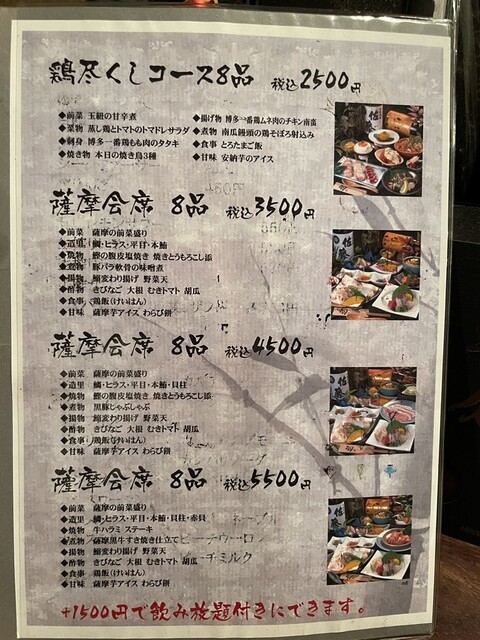 鶏尽くしコース8品 税込2500円
◆前菜 玉紐の甘辛煮
◆菜物 蒸し鶏とトマトのトマドレサラダ
◆刺身 博多一番鶏もも肉のタタキ
◆焼き物 本日の焼き鳥3種
◆揚げ物 博多一番鶏ムネ肉のチキン南蛮
◆煮物 南瓜饅頭の鶏そぼろ射込み
◆食事 とろたまご飯
◆甘味 安納芋のアイス
薩摩会席 8品 税込3500円
◆前菜 薩摩の前菜盛り
◆造里 鯛・ヒラス・平目・本鮪
◆焼物 鰹の腹皮塩焼き 焼きとうもろこし添
◆煮物 豚バラ軟骨の味噌煮
◆揚物 鰯変わり揚げ 野菜天
◆酢物 きびなご 大根 むきトマト 胡瓜
◆食事 鶏飯(けいはん)
◆甘味 薩摩芋アイス わらび餅
薩摩会席 8品 税込4500円
◆前菜 薩摩の前菜盛り
◆造里 鯛・ヒラス・平目・本鮪・貝柱
◆焼物 鰹の腹皮塩焼き 焼きとうもろこし添
◆煮物 黒豚じゃぶしゃぶ
◆揚物 鰯変わり揚げ 野菜天
◆酢物 きびなご 大根 むきトマト 胡瓜
◆食事 鶏飯(けいはん)
◆甘味 薩摩芋アイス わらび餅
薩摩会席 8品 税込5500円
◆前菜 薩摩の前菜盛り
◆造里 鯛・ヒラス・平目・本鮪・貝柱・赤貝
◆焼物 牛ハラミ ステーキ
◆煮物 薩摩黒牛すき焼き仕立て
◆揚物 鰯変わり揚げ 野菜天
◆酢物 きびなご 大根 むきトマト 胡瓜
◆食事 鶏飯(けいはん)
◆甘味 薩摩芋アイス わらび餅
+1500円で飲み放題付きにできます。